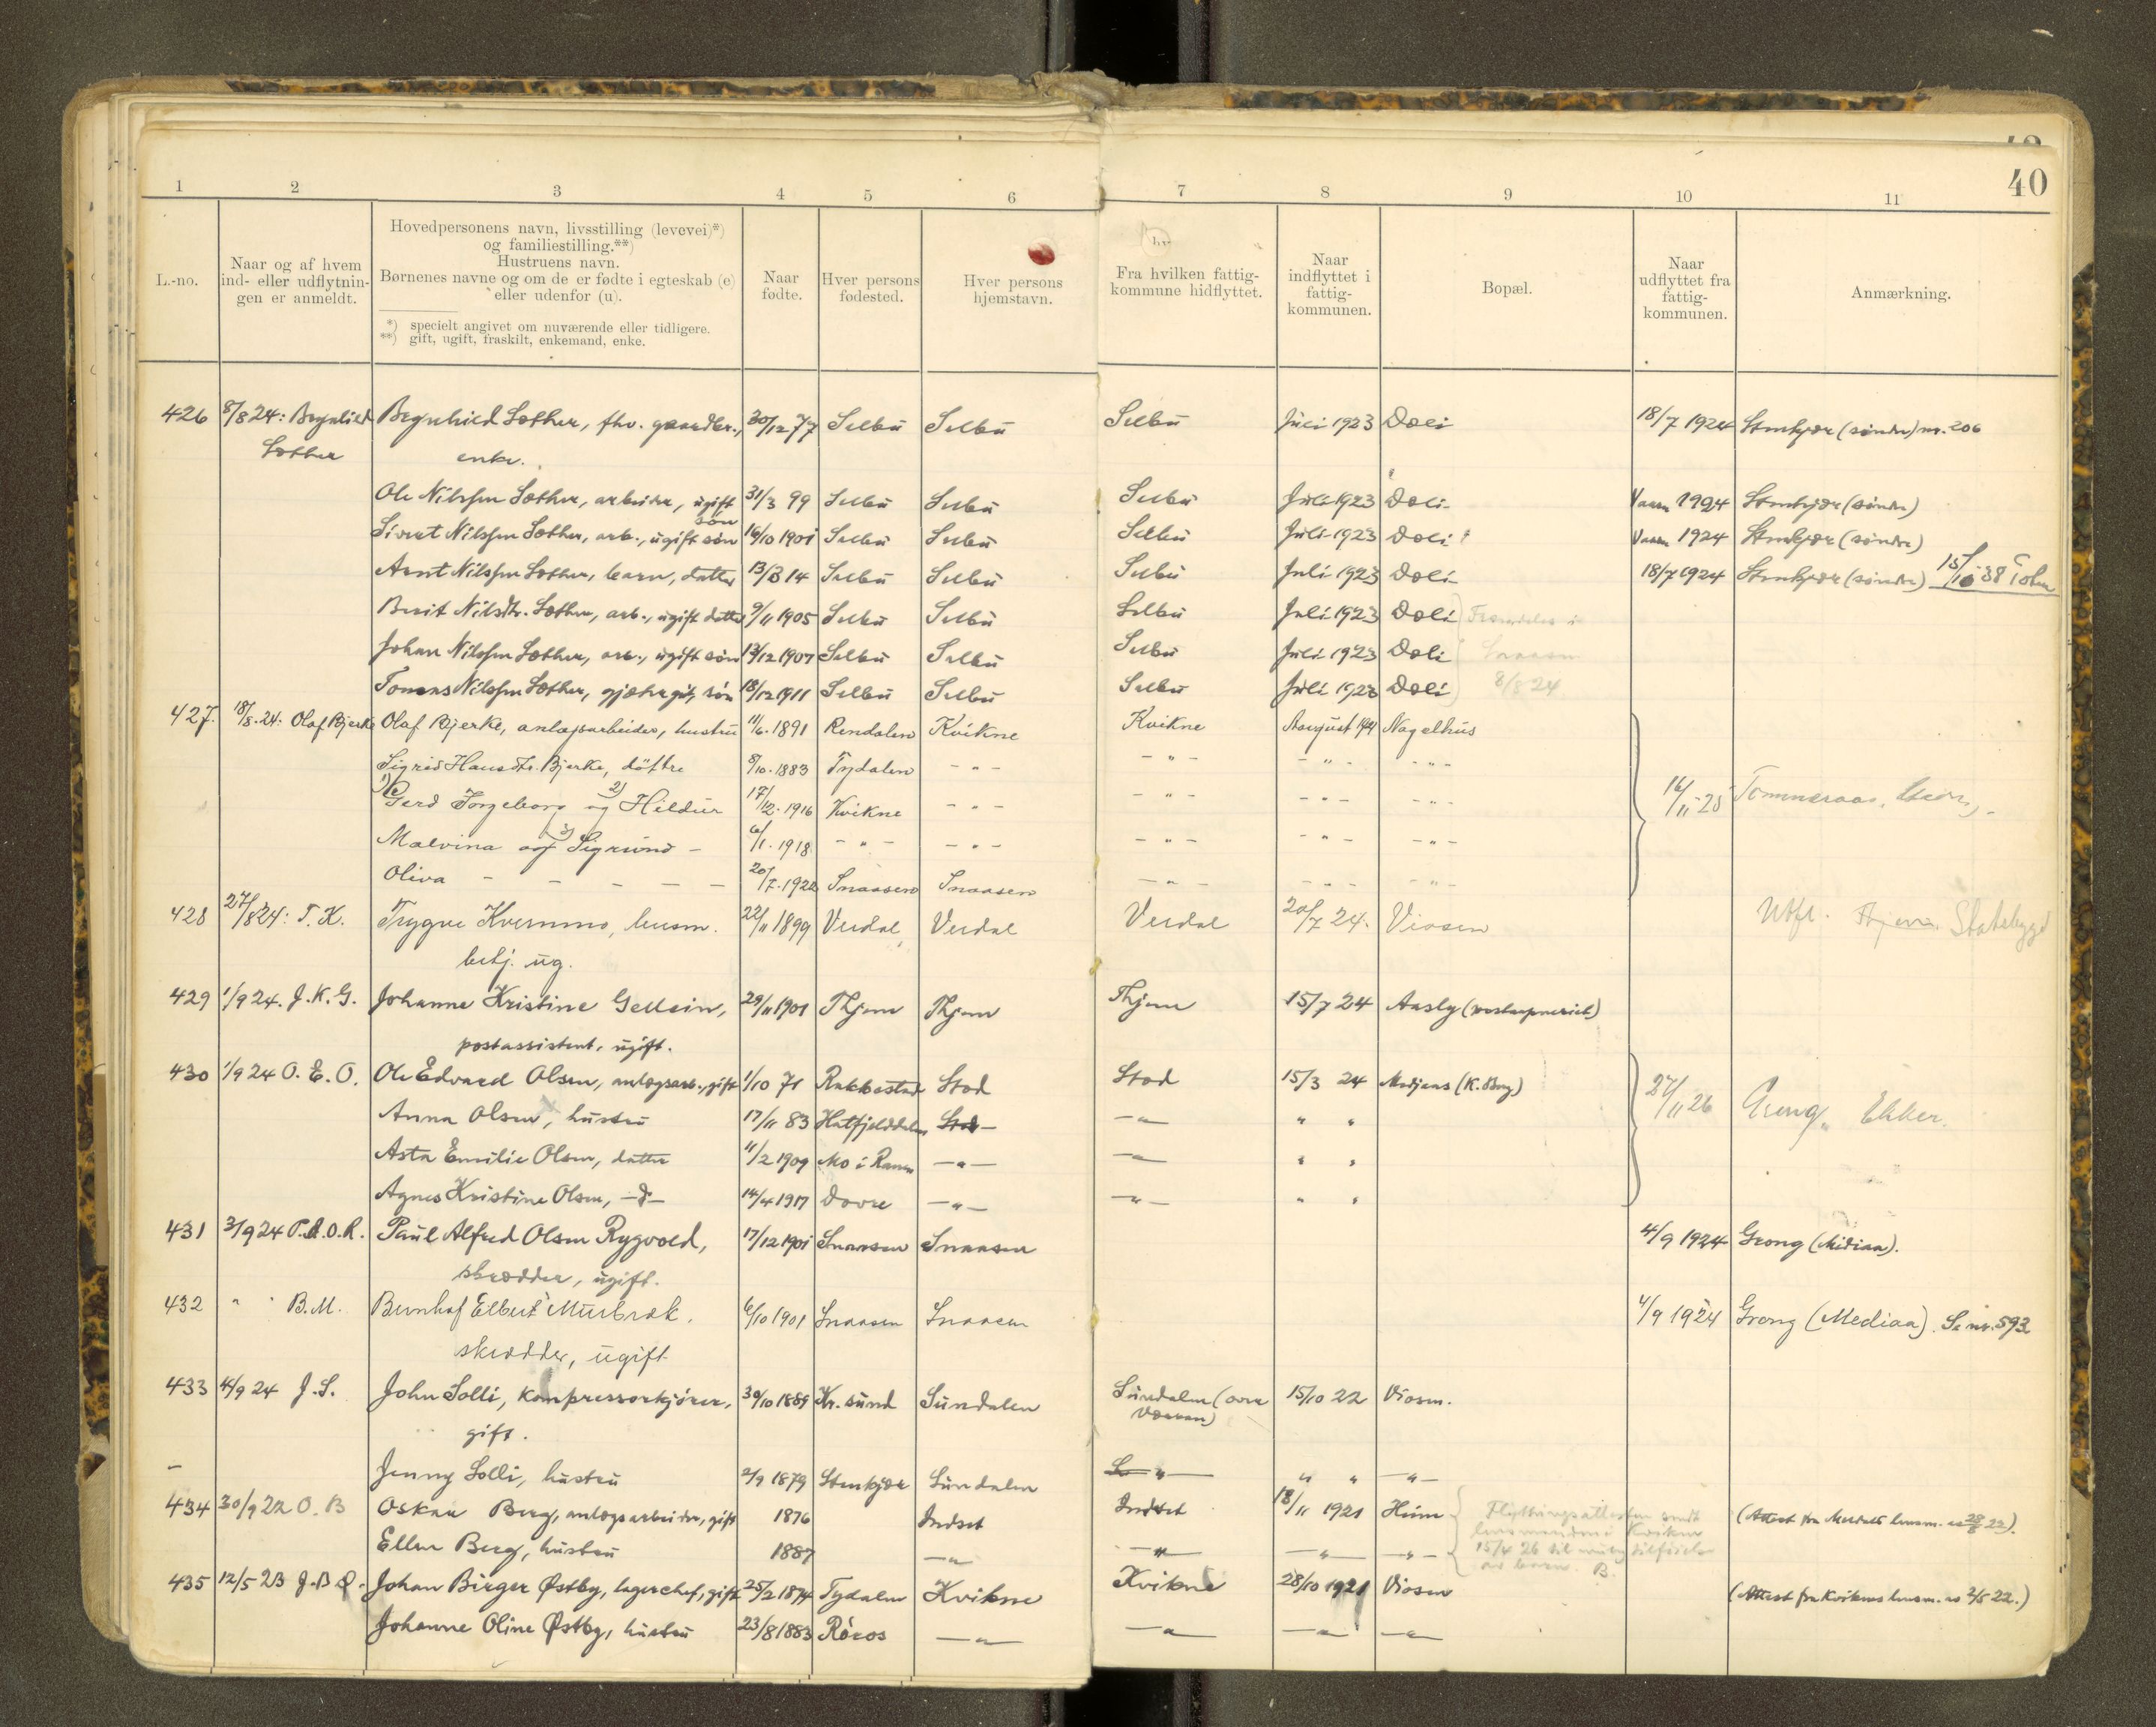 40
1 2 3 4 5 6 7 8 9 10 11
L.-no.
Naar og af hvem ind- eller udflytnin- gen er anmeldt.
Hovedpersonens navn, livsstilling (levevei)*)
og familiestilling.**)
Hustruens navn.
Børnenes navne og om de er fødte i egteskab (e)
eller udenfor (u).
*) specielt angivet om nuværende eller tidligere.
**) gift, ugift, fraskilt, enkemand, enke.
Naar fødte.
Hver persons fødested.
Hver persons hjemstavn.
Fra hvilken fattig- kommune hidflyttet.
Naar indflyttet i fattig- kommunen.
Bopæl.
Naar udflyttet fra fattig- kommunen.
Anmærkning.
426 8/8 24: Sæther, fhv. gaardbr., 30/12 77 Selbu Selbu Selbu Juli 1923 Doli 18/7 1924 Stenkjær (søndre) nr. 206
Sæther enke.
Ole Nilssen Sæther, arbeider, ugift søn 31/3 99 Selbu Selbu Selbu Juli 1923 Doli Vaaren 1924 Stenkjær (søndre)
Sivert Nilssen Sæther, arb., ugift søn 16/10 1901 Selbu Selbu Selbu Juli 1923 Doli Vaaren 1924 Stenkjær (søndre)
Arnt Nilssen Sæther, barn, datter 13/3 14 Selbu Selbu Selbu Juli 1923 Doli 18/7 1924 Stenkjær (søndre) 15/10-38
Berit Nilsdtr. Sæther, arb., ugift datter 9/11 1905 Selbu Selbu Selbu Juli 1923 Doli Fremdeles i
Johan Nilssen Sæther, arb., ugift søn 13/12 1907 Selbu Selbu Selbu Juli 1923 Doli Snaasen
Tomas Nilssen Sæther, gjætergut, søn 18/12 1911 Selbu Selbu Selbu Juli 1923 Doli 8/8 24
427. 18/8-24: Olaf Bjerke Olaf Bjerke, anlægsarbeider, hustru 11/6. 1891 Rendalen Kvikne Kvikne August 1921 Nagelhus
Sigrid Hansdtr. Bjerke, döttre 8/10. 1883 Tydalen -"- -"- -"- -"-
1) Gerd Ingeborg og 2) Hildur 17/12. 1916 Kvikne -"- -"- -"- -"- 16/11-25 Tømmeraas,
Malvina og 3) Sigrund - 6/1. 1918 -"- -"- -"- -"- -"-
Oliva - - - - - 20/7. 1922 Snaasen Snaasen -"- -"- -"-
428 27/8 24: T. K. Trygve Kvernmo, lensm. Verdal Verdal Verdal 20/7 24. Viosen Utfl. Statsbygd
22/11 1899
betj. ug.
429 1/9 24. J. K. G. Johanne Kristine Gellein, 29/11 1901 Thjem Thjem Thjem 15/7 24 Aasly
postassistent, ugift.
430 1/9 24 O. E. O. Ole Edvard Olsen, anlægsarb., gift 1/10 71 Rakkestad Stod Stod 15/3 24 Medjeas (K. Berg) 27/11 26 Grong, Ekker.
Anna Olsen, hustru 17/11 83 Hatfjelddalen Stod- -"- " "
Asta Emilie Olsen, datter 11/2 1909 Mo i Ranen -"- -"- " "
Agnes Kristine Olsen, -d- 14/4 1917 Dovre -"- -"- " "
431 3/9 24 P. A. O. R. Paul Alfred Olsen Rygvold, 17/12 1901 Snaasen Snaasen 4/9 1924 Grong (Mediaa).
skrædder, ugift.
432 " " B. M. Bernhof Elbert Murbræk, 6/10 1901 Snaasen Snaasen 4/9 1924 Grong (Mediaa). Se nr. 593
skrædder, ugift
433 4/9 24 J. S. John Solli, kompressorkjører, 30/10 1889 Kr. sund Sundalen Sundalen (over Væran) 15/10 22 Viosen.
gift.
- Jenny Solli, hustru 2/9 1879 Stenkjær Sundalen -"- " " -"-
434 30/9 22 O. B Oskar Berg, anlægsarbeider, gift 1876 Indset Indset 18/11 1921 Heim Flyttningsattesten sendt (Attest fra Meldals lensm. av 28/8 22).
lensmanden i Kvikne
Ellen Berg, hustru 1887 -"- -"- -"- -"- 15/4 26 til
av barn. B.
435 12/5 23 J. B Ø. Johan Birger Østby, lagerchef, gift 25/2 1874 Tydalen Kvikne Kvikne 28/10 1921 Viosen (Attest fra Kviknes lensm. av 2/5 22.)
Johanne Oline Østby, hustru 23/8 1883 Röros -"- -"- -"- -"-